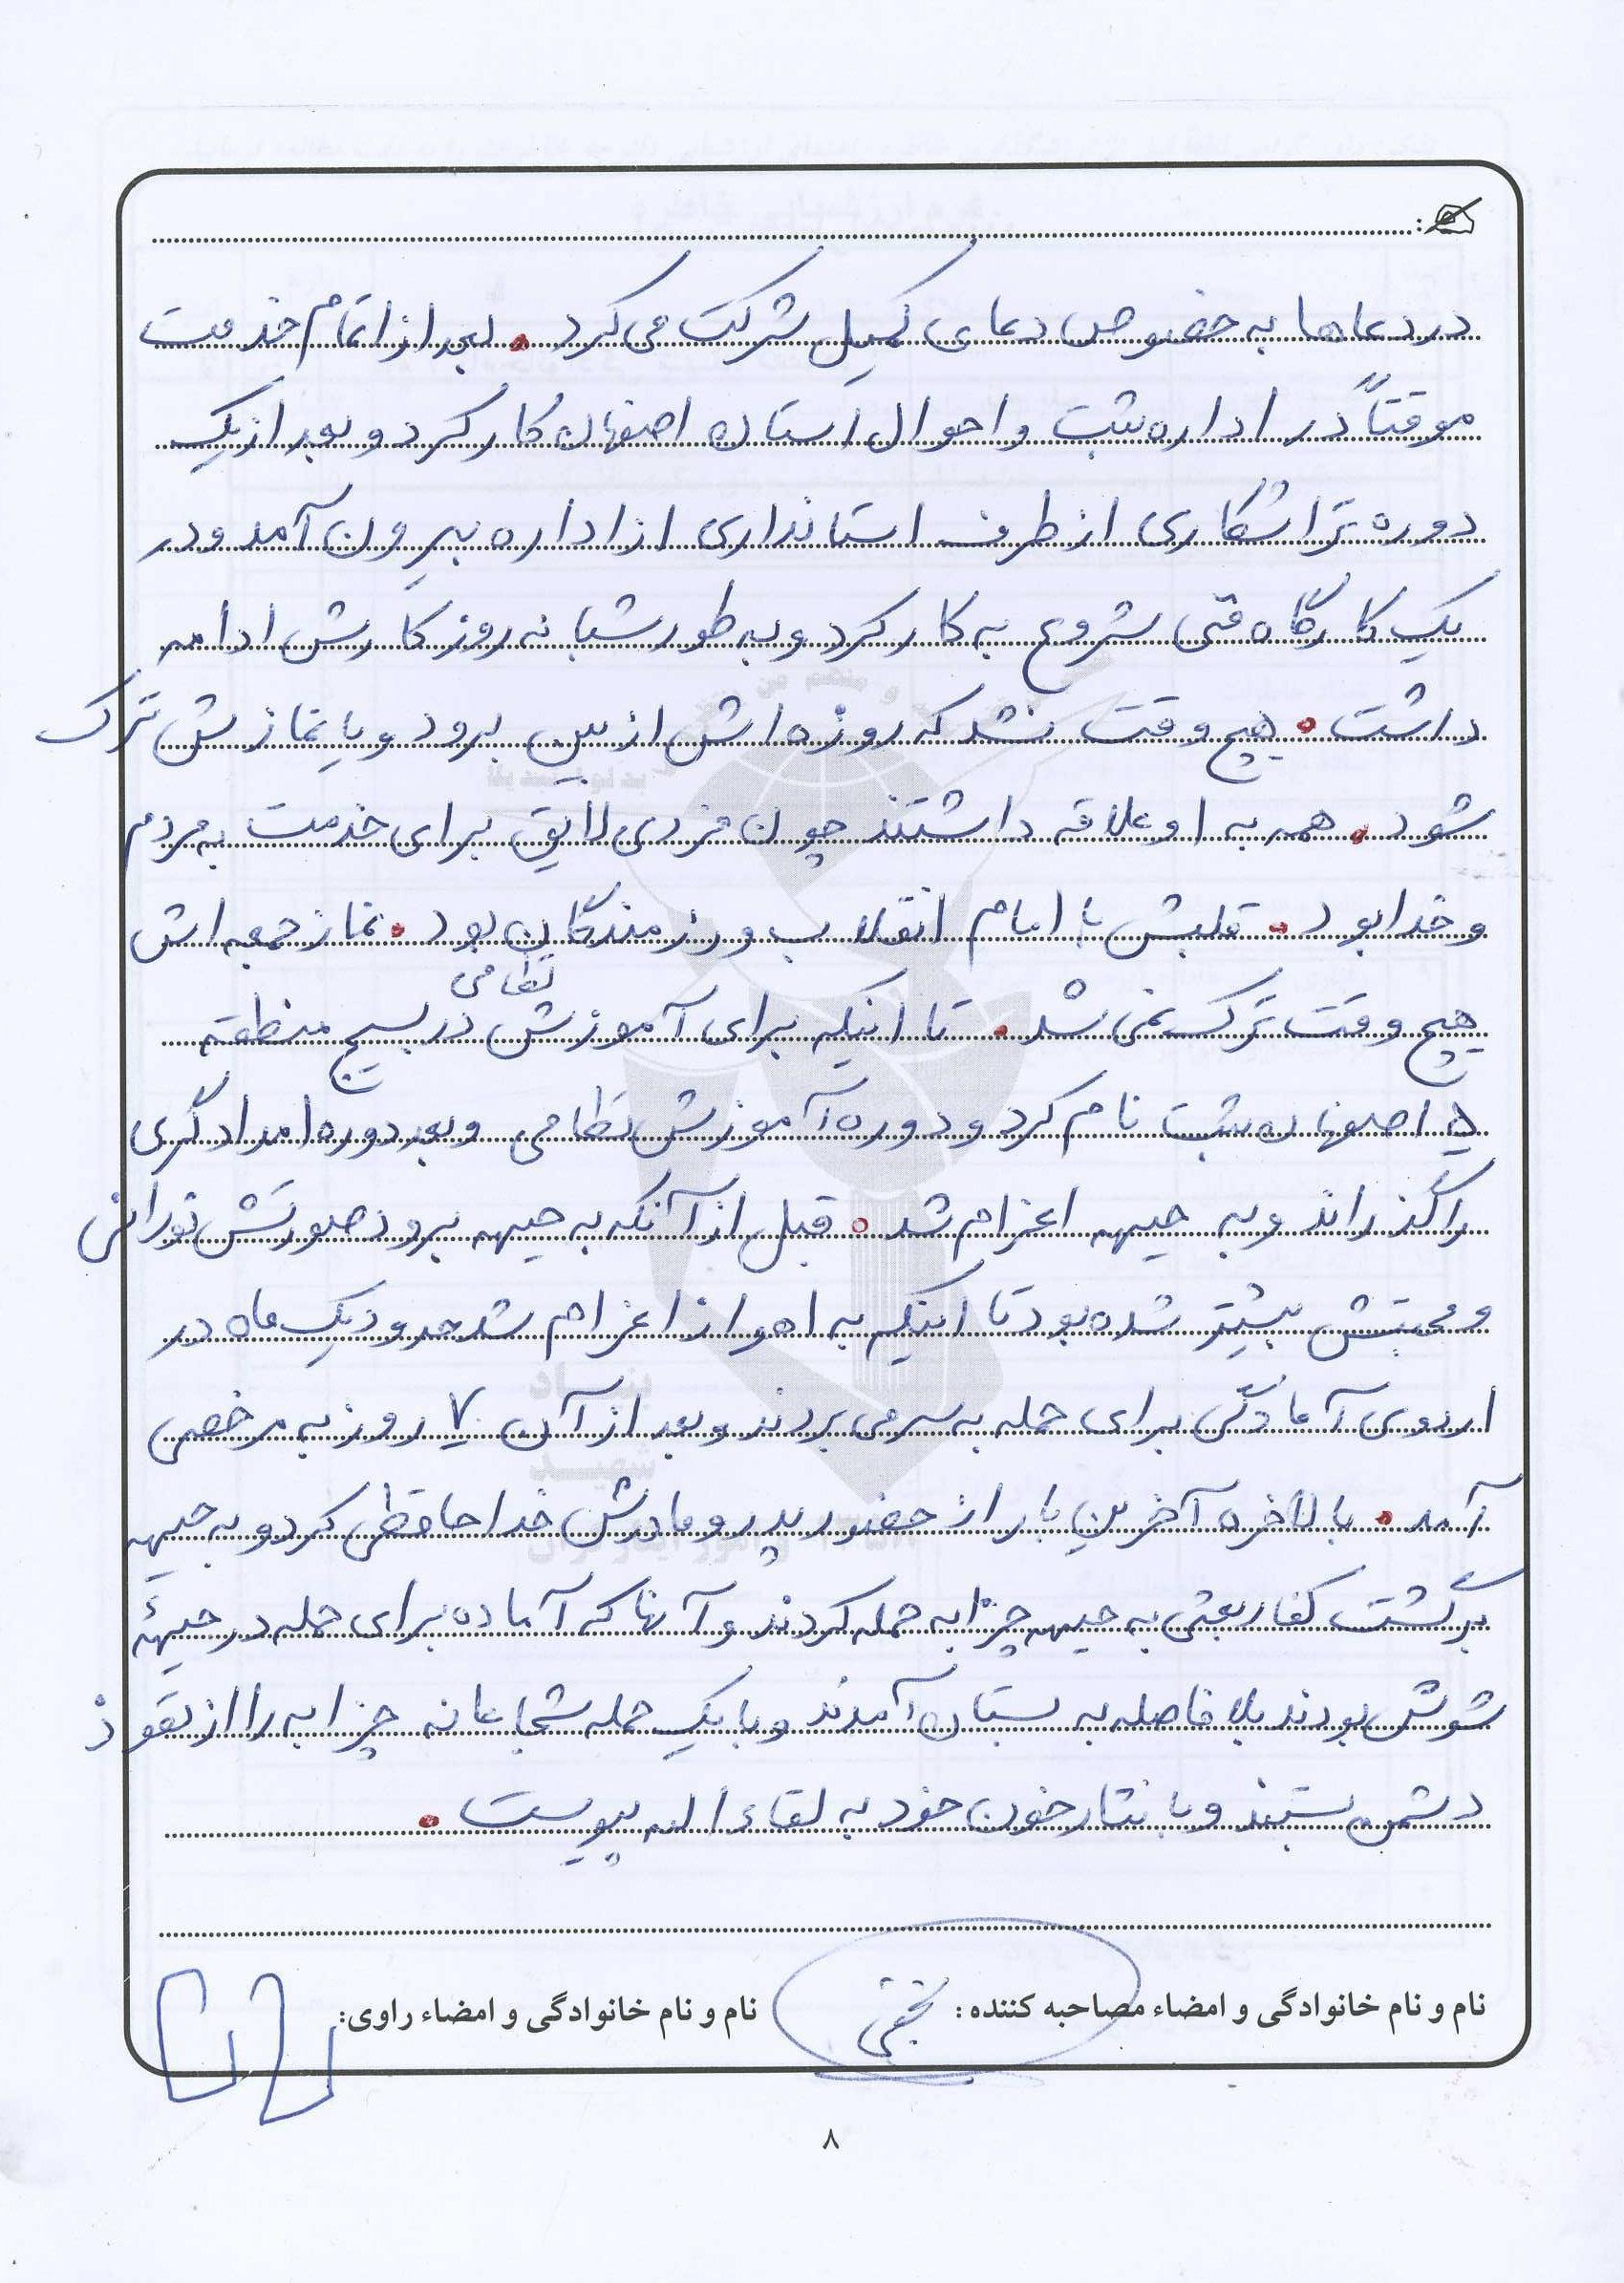 در دعاها به خصوص دعای کمیل شرکت می کرد. بعد از اتمام خدمت
موقتاً در اداره ثبت و احوال استان اصفهان کار کرد و بعد از یک
دوره تراشکاری از طرف استانداری از اداره بیرون آمد و در
یک کارگاه فنی شروع به کار کرد و به طور شبانه روز کارش ادامه
داشت. هیچ وقت نشد که روزه اش از بین برود و یا نمازش ترک
شود. همه به او علاقه داشتند چون فردی لایق برای خدمت به مردم
و خدا بود. قلبش با امام انقلاب و رزمندگان بود. نماز جمعه اش
هیچ وقت ترک نمی شد. تا اینکه برای آموزش نظامی در بسیج منطقه
۵ اصفهان ثبت نام کرد و دوره آموزش نظامی و بعد دوره امدادگری
را گذراند و به جبهه اعزام شد. قبل از آنکه به جبهه برود صورتش نورانی
و محبتش بیشتر شده بود تا اینکه به اهواز اعزام شد حدود یک ماه در
اردوی آمادگی برای حمله به سر می بردند و بعد از آن ۷ روز به مرخصی
آمد. بالاخره آخرین بار از حضور پدر و مادرش خداحافظی کرد و به جبهه
برگشت کفار بعثی به جبهه چزابه حمله کردند و آنها که آماده برای حمله در جبههٔ
شوش بودند بلافاصله به بستان آمدند و با یک حمله شجاعانه چزابه را از نفوذ
دشمن بستند و با نثار خون خود به لقاء الله پیوست.
نام و نام خانوادگی و امضاء مصاحبه کننده: نام و نام خانوادگی و امضاء راوی:
۸